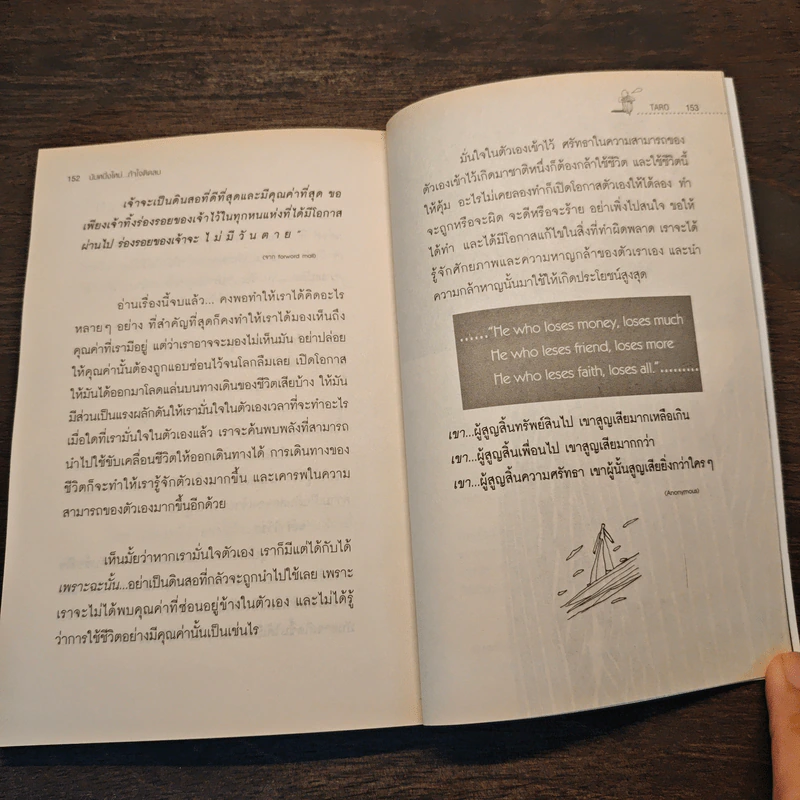 152
เจ้าจะเป็นดินสอที่ดีที่สุดและมีคุณค่าที่สุด ขอ
เพียงเจ้าทิ้งร่องรอยของเจ้าไว้ในทุกหนแห่งที่ได้มีโอกาส
ผ่านไป ร่องรอยของเจ้าจะ ไ ม่ มี วั น ต า ย ”
(จาก forword mail)
อ่านเรื่องนี้จบแล้ว... คงพอทำให้เราได้คิดอะไร
หลายๆ อย่าง ที่สำคัญที่สุดก็คงทำให้เราได้มองเห็นถึง
คุณค่าที่เรามีอยู่ แต่ว่าเราอาจจะมองไม่เห็นมัน อย่าปล่อย
ให้คุณค่านั้นต้องถูกแอบซ่อนไว้จนโลกลืมเลย เปิดโอกาส
ให้มันได้ออกมาโลดแล่นบนทางเดินของชีวิตเสียบ้าง ให้มัน
มีส่วนเป็นแรงผลักดันให้เรามั่นใจในตัวเองเวลาที่จะทำอะไร
เมื่อใดที่เรามั่นใจในตัวเองแล้ว เราจะค้นพบพลังที่สามารถ
นำไปใช้ขับเคลื่อนชีวิตให้ออกเดินทางได้ การเดินทางของ
ชีวิตก็จะทำให้เรารู้จักตัวเองมากขึ้น และเคารพในความ
สามารถของตัวเองมากขึ้นอีกด้วย
เห็นมั้ยว่าหากเรามั่นใจตัวเอง เราก็มีแต่ได้กับได้
เพราะฉะนั้น...อย่าเป็นดินสอที่กลัวจะถูกนำไปใช้เลย เพราะ
เราจะไม่ได้พบคุณค่าที่ซ่อนอยู่ข้างในตัวเอง และไม่ได้รู้
ว่าการใช้ชีวิตอย่างมีคุณค่านั้นเป็นเช่นไร
TARO 153
มั่นใจในตัวเองเข้าไว้ ศรัทธาในความสามารถของ
ตัวเองเข้าไว้เกิดมาชาติหนึ่งก็ต้องกล้าใช้ชีวิต และใช้ชีวิตนี้
ให้คุ้ม อะไรไม่เคยลองทำก็เปิดโอกาสตัวเองให้ได้ลอง ทำ
จะถูกหรือจะผิด จะดีหรือจะร้าย อย่าเพิ่งไปสนใจ ขอให้
ได้ทำ และได้มีโอกาสแก้ไขในสิ่งที่ทำผิดพลาด เราจะได้
รู้จักศักยภาพและความหาญกล้าของตัวเราเอง และนำ
ความกล้าหาญนั้นมาใช้ให้เกิดประโยชน์สูงสุด
......“He who loses money, loses much
He who leses friend, loses more
He who leses faith, loses all.”.........
เขา...ผู้สูญสิ้นทรัพย์สินไป เขาสูญเสียมากเหลือเกิน
เขา...ผู้สูญสิ้นเพื่อนไป เขาสูญเสียมากกว่า
เขา...ผู้สูญสิ้นความศรัทธา เขาผู้นั้นสูญเสียยิ่งกว่าใครๆ
(Anonymous)